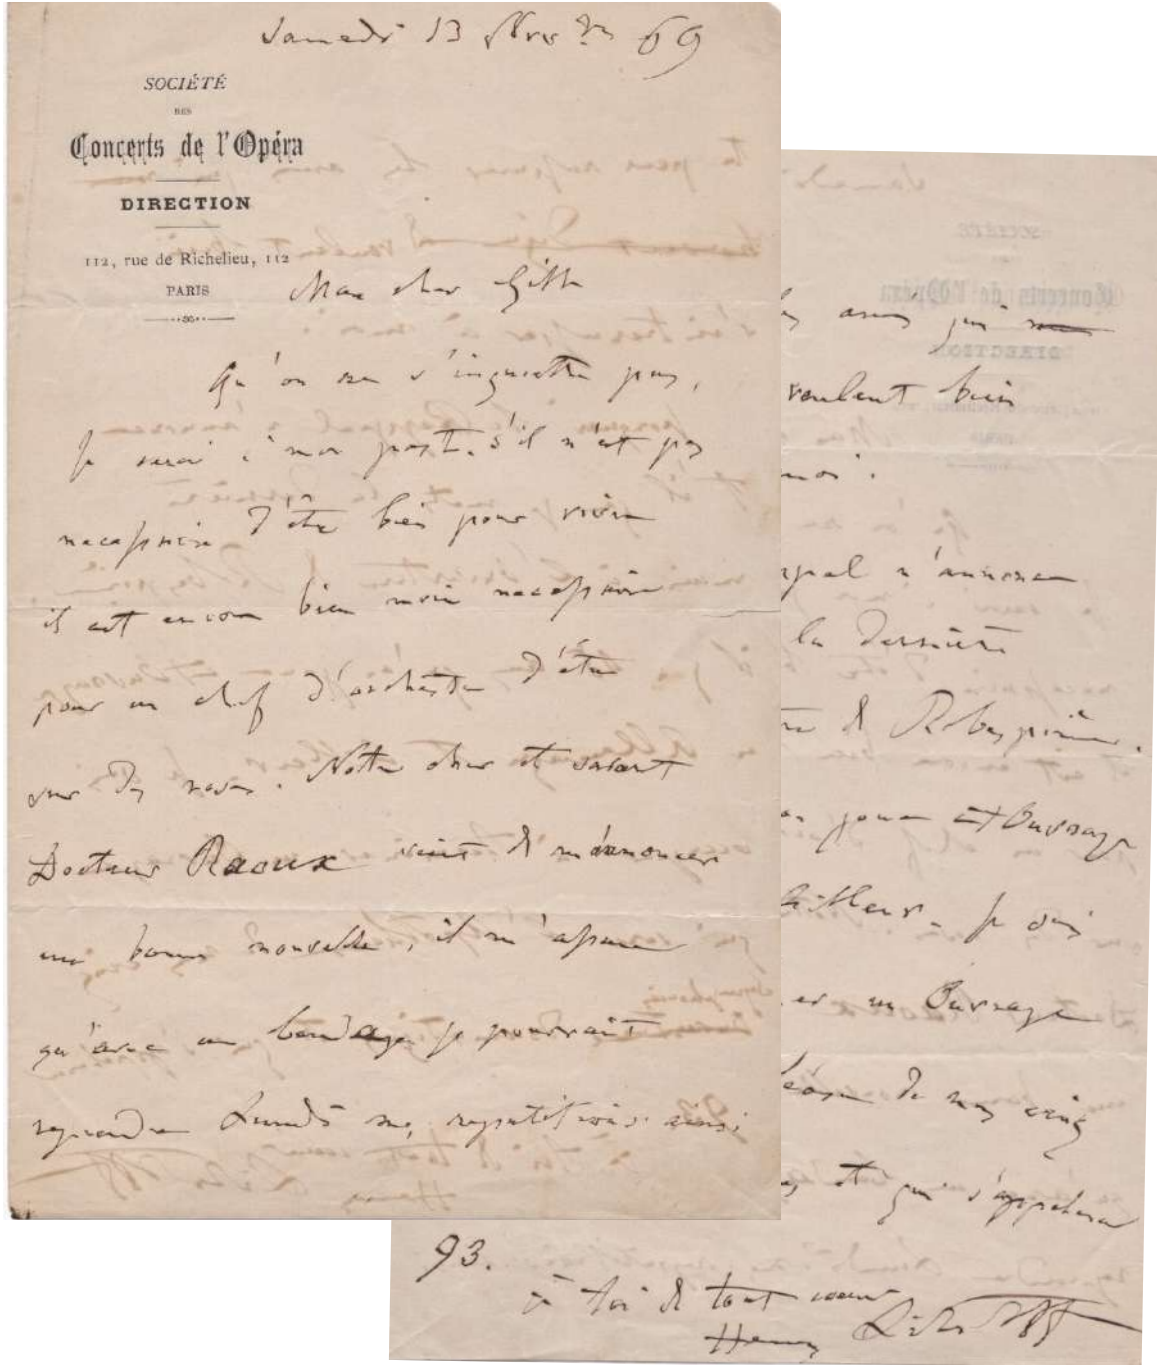 Samedi 13 9bre 69
SOCIÉTÉ
DES
Concerts de l'Opéra
DIRECTION
112, rue de Richelieu, 112
PARIS
Mon cher Gille
Qu'on ne s'inquiette pas,
Je serai à mon poste. s'il n'est pas
necessaire d'être bien pour vivre
il est encore bien moin necessaire
pour un chef d'orchestre d'être
sur des roses. Notre cher et savant
Docteur Raoux vient de m'annoncer
une bonne nouvelle, il m'assure
qu'avec un bandage je pourrait
reprendre Lundi mes repetitions. ainsi
amis qui
veulent bien
moi.
n'annonce
la dernière
de Robespierre.
joue cet Ouvrage
ailleurs. Je suis
un Ouvrage
de nos cinq
et qui s'appelera
93.
à toi de tout coeur
Henry Litolff